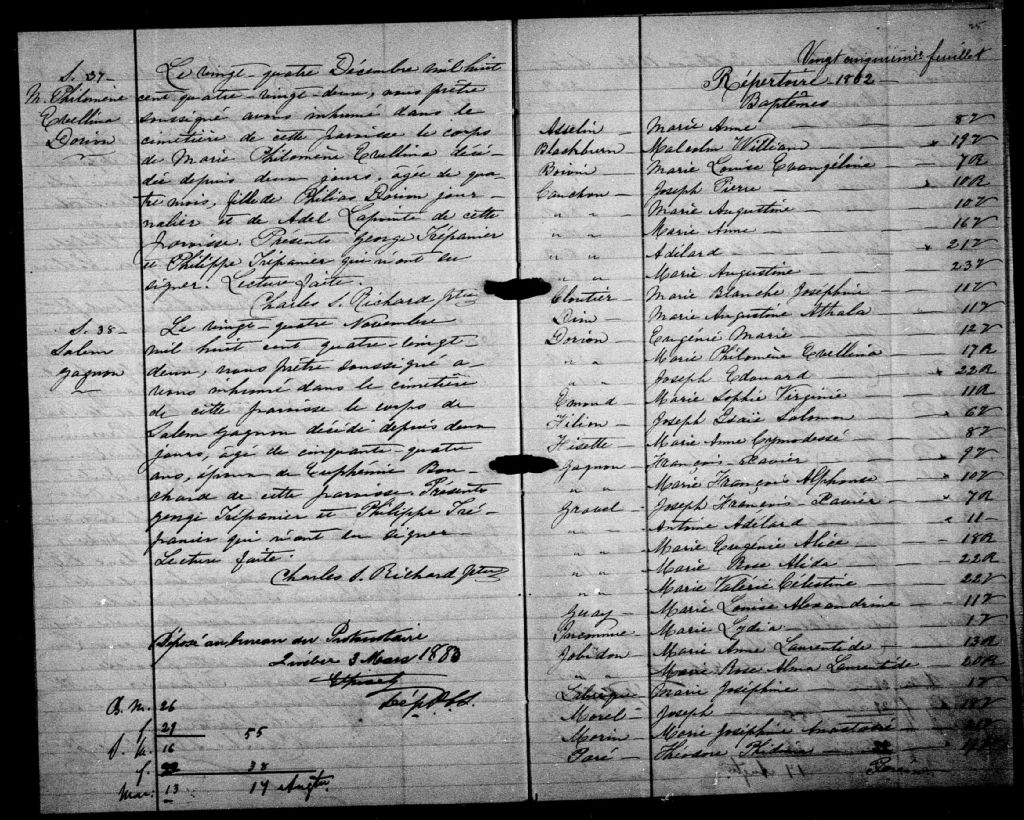 S. 37
M. Philomène
Evellina
Dorion
Le vingt-quatre Décembre mil huit
cent quatre-vingt-deux, nous prêtre
soussigné avons inhumé dans le
cimetière de cette paroisse le corps
de Marie Philomène Evellina décé-
dée depuis deux jours, agée de qua-
tre mois, fille de Philias Dorion jour-
nalier et de Adel Lapointe de cette
paroisse. Présents George Trépanier
et Philippe Trépanier qui n'ont su
signer. Lecture faite.
Charles S. Richard Ptre
S. 38
Salem
Gagnon
Le vingt-quatre Novembre
mil huit cent quatre-vingt
deux, nous prêtre soussigné a-
vons inhumé dans le cimetière
de cette paroisse le corps de
Salem Gagnon décédé depuis deux
jours, agé de cinquante-quatre
ans, époux de Euphémie Bou-
chard de cette paroisse. Présents
George Trépanier et Philippe Tré-
panier qui n'ont su signer
Lecture faite.
Charles S. Richard Ptre
Déposé au bureau du Protonotaire
Québec 3 Mars 1883
Dép P.C.S.
B. M. 26
f. 29 55
S. M. 16
f. 22 38
Mar. 13 17
25
Vingt cinquième feuillet
Répertoire 1882
Baptêmes
Asselin Marie Anne 8V
Blackburn Malcolm William 19V
Boivin Marie Louise Evangéline 7R
Cauchon Joseph Pierre 10R
" " Marie Augustine 10V
" " Marie Anne 16V
" " Adélard 21V
" " Marie Augustine 23V
Cloutier Marie Blanche Joséphine 11V
Dion Marie Augustine Athala 11V
Dorion Eugénie Marie 12V
" " Marie Philomène Evellina 17R
" " Joseph Edouard 22R
Emond Marie Sophie Virginie 11R
Filion Joseph Isaïe Salomon 6V
Fiset Marie Anne 8V
Gagnon François-Xavier 9V
" " Marie François Alphonse 10V
Gravel Joseph François-Xavier 7R
" " Antoine Adélard 11
" " Marie Eugénie Alice 18R
" " Marie Rose Alida 22R
" " Marie Valérie Célestine 22V
Guay Marie Louise Alexandrine 11V
Marie Lydia 1V
Jobidon Marie Anne Laurentide 13R
" " Marie Rose Alma Laurentide 20R
Marie Joséphine 1V
Morel Joseph 18V
Morin Marie Joséphine Anastasie
Paré Théodore